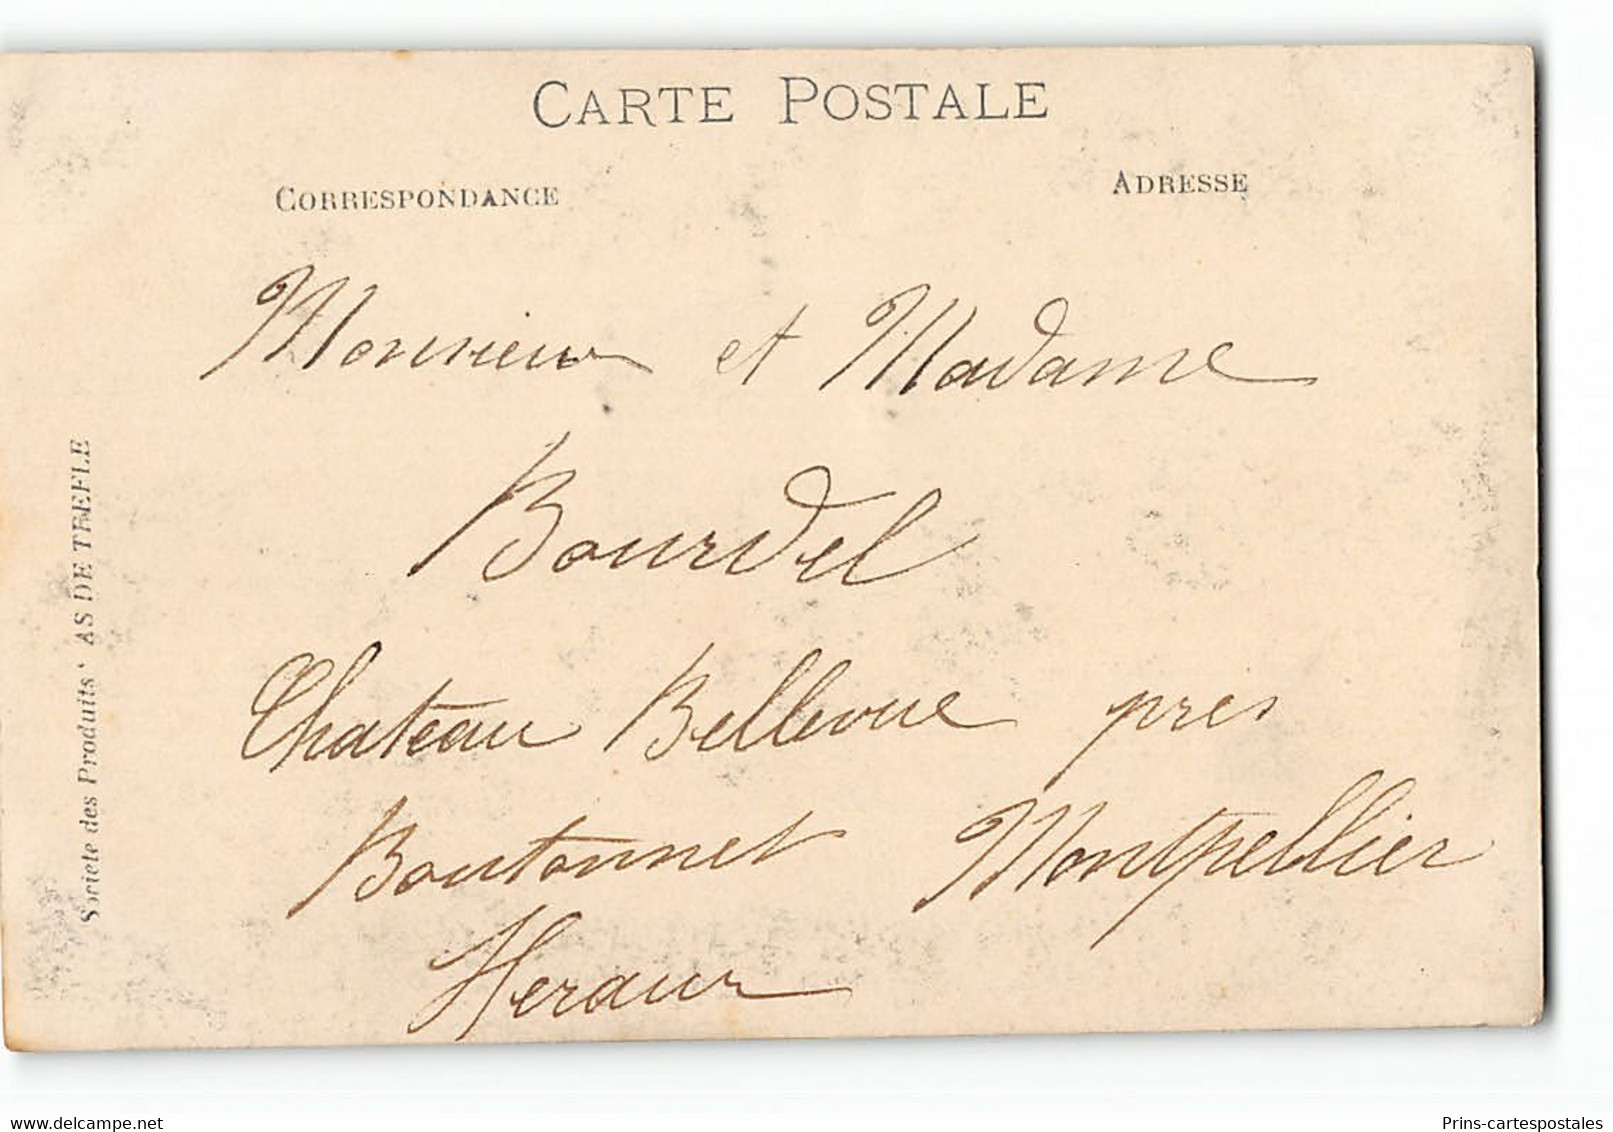 CARTE POSTALE
CORRESPONDANCE
ADRESSE
Monsieur et Madame
Bourdel
Chateau Bellevue pres
Boutonnet Montpellier
Heraux
Societe des Produits "AS DE TREFLE
www.delcampe.net
Prins-cartespostales